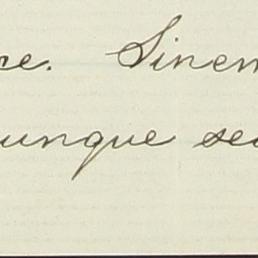 re. Sinem
unque sec